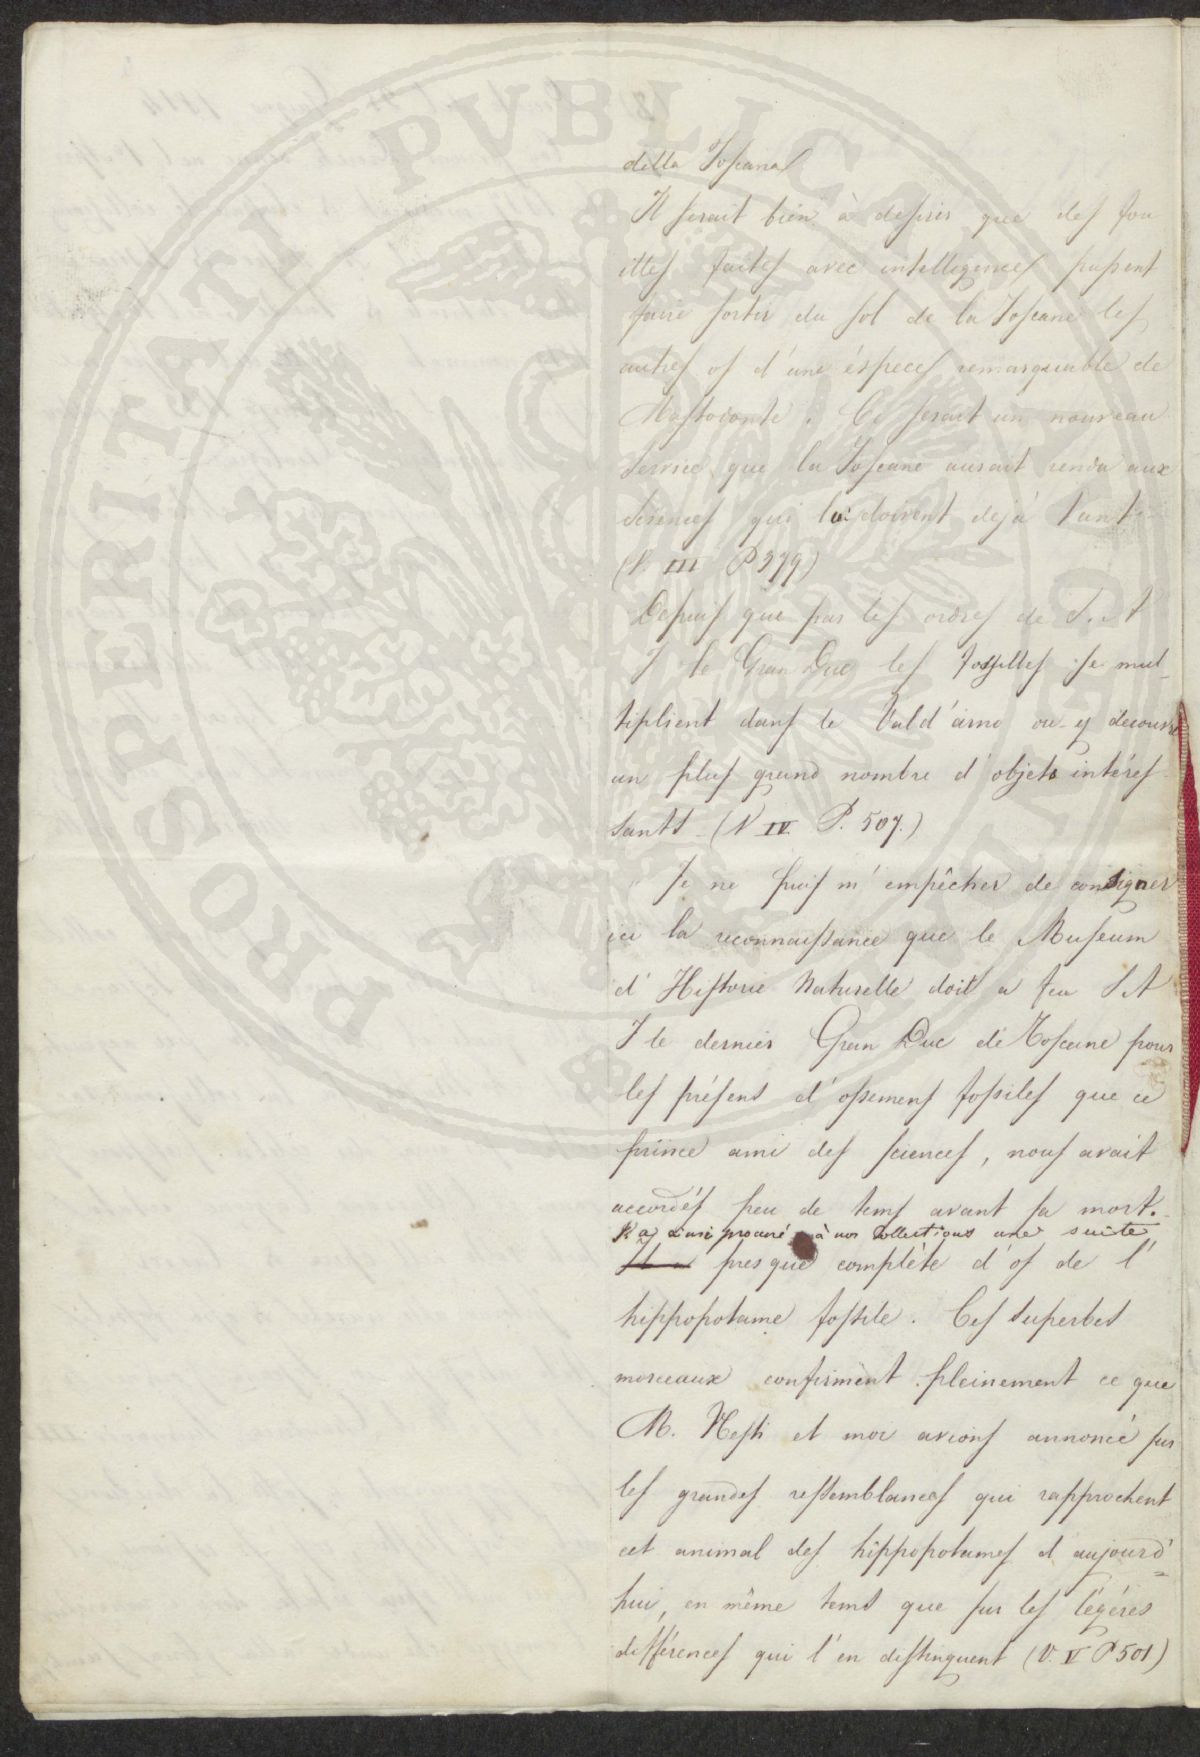 PROSPERITATI PUBLICAE
della Toscana
Il serait bien à desirer que des fou
illes faites avec intelligences pussent
faire sortir du sol de la Toscane les
autres os d'une éspeces remarquable de
Mastodonte. Ce serait un nouveau
Service que la Toscane aurait rendu aux
Sciences qui lui doivent dejà tant
(V. III P 379)
Depuis que par les ordres de S. A
I le Gran Duc les Fossilles se mul
tiplient dans le Vald'arno on y decouvre
un plus grand nombre d'objets intéres
sants - (V IV P. 507.)
Je ne puis m'empêcher de consigner
ici la reconnaissance que le Museum
d'Historie Naturelle doit a feu S A
I le dernier Gran Duc de Toscane pour
les présens d'ossemens fossiles que ce
prince ami des sciences, nous avait
accordés peu de tems avant sa mort.
Il a ainsi procuré à nos Collections une suite
Il a presque complète d'os de l'
hippopotame fossile. Ces superbes
morceaux confirment pleinement ce que
M. Nesti et moi avions annoncé sur
les grandes ressemblances qui rapprochent
cet animal des hippopotames d'aujourd'
hui, en même tems que sur les légéres
différences qui l'en distinguent (V. V P 501)